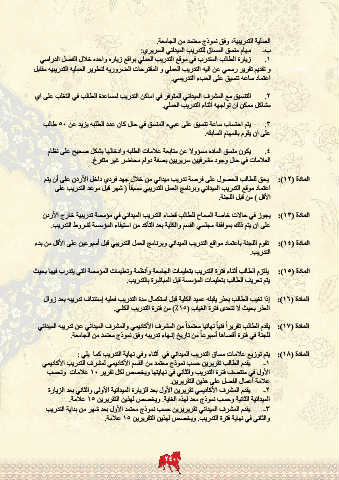 العملية التدريبية، وفق نموذج معتمد من الجامعة.
ب- مهام منسق المساق للتدريب الميداني السريري:
١. زيارة الطالب المتدرب في موقع التدريب العملي بواقع زيارة واحدة خلال الفصل الدراسي
و تقديم تقرير رسمي عن آلية التدريب العملي و المقترحات الضرورية لتطوير العملية التدريبية مقابل
اعتماد ساعة تنسيق على العبء التدريسي.
٢. التنسيق مع المشرف الميداني المتوفر في أماكن التدريب لمساعدة الطالب في التغلب على أي
مشاكل ممكن أن تواجهه أثناء التدريب العملي.
٣. يتم احتساب ساعة تنسيق على عبء المنسق في حال كان عدد الطلبة يزيد عن ٥٠ طالب
على أن يقوم بالمهام السابقة.
٤. يكون منسق المادة مسؤولا عن متابعة علامات الطلبة وإدخالها بشكل صحيح على نظام
العلامات في حال وجود مشرفين سريريين بصفة دوام محاضر غير متفرغ.
المادة (١٢): يحق الطالب الحصول على فرصة تدريب ميداني من خلال جهد فردي داخل الأردن على أن يتم
اعتماد موقع التدريب الميداني وبرنامج العمل التدريبي مسبقاً ( شهر قبل موعد التدريب على
الأقل ) من قبل اللجنة.
المادة (١٣): يجوز في حالات خاصة السماح للطالب قضاء التدريب الميداني في مؤسسة تدريبية خارج الأردن
على أن يتم ذلك بموافقة مجلسي القسم والكلية بعد التأكد من استيفاء المؤسسة لشروط التدريب.
المادة (١٤): تقوم اللجنة باعتماد مواقع التدريب الميداني وبرنامج العمل التدريبي قبل أسبوعين على الأقل من بدء
التدريب.
المادة (١٥): يلتزم الطالب أثناء فترة التدريب بتعليمات الجامعة وأنظمة وتعليمات المؤسسة التي يتدرب فيها بحيث
يتم تعريف الطالب بتعليمات المؤسسة قبل المباشرة بالتدريب.
المادة (١٦): إذا تغيب الطالب بعذر يقبله عميد الكلية قبل استكمال مدة التدريب فعليه إستئناف تدريبه بعد زوال
العذر بحيث لا تتعدى فترة الغياب (١٥٪) من فترة التدريب الكلي.
المادة (١٧): يقدم الطالب تقريراً فنياً نهائياً معتمداً من المشرف الأكاديمي والمشرف الميداني عن تدريبه الميداني
للجنة في فترة أقصاها أسبوعاً من تاريخ إنهاء تدريبه وفق نموذج معتمد من الجامعة.
المادة (١٨): يتم توزيع علامات مساق التدريب الميداني في أثناء وفي نهاية التدريب كما يلي :
١- يقدم الطالب تقريرين حسب نموذج معتمد من القسم الأكاديمي لمشرف التدريب الأكاديمي
الأول في منتصف فترة التدريب والثاني في نهايتها ويخصص لكل تقرير ١٠ علامات وتحسب
علامة أعمال الفصل على هذين التقريرين.
٢- يقدم المشرف الأكاديمي تقريرين الأول بعد الزيارة الميدانية الأولى والثاني بعد الزيارة
الميدانية الثانية وحسب نموذج معد لهذه الغاية. ويخصص لهذين التقريرين ١٥ علامة.
٣- يقدم المشرف الميداني تقريرين حسب نموذج معتمد الأول بعد شهر من بداية التدريب
والثاني في نهاية فترة التدريب. ويخصص لهذين التقريرين ١٥ علامة.